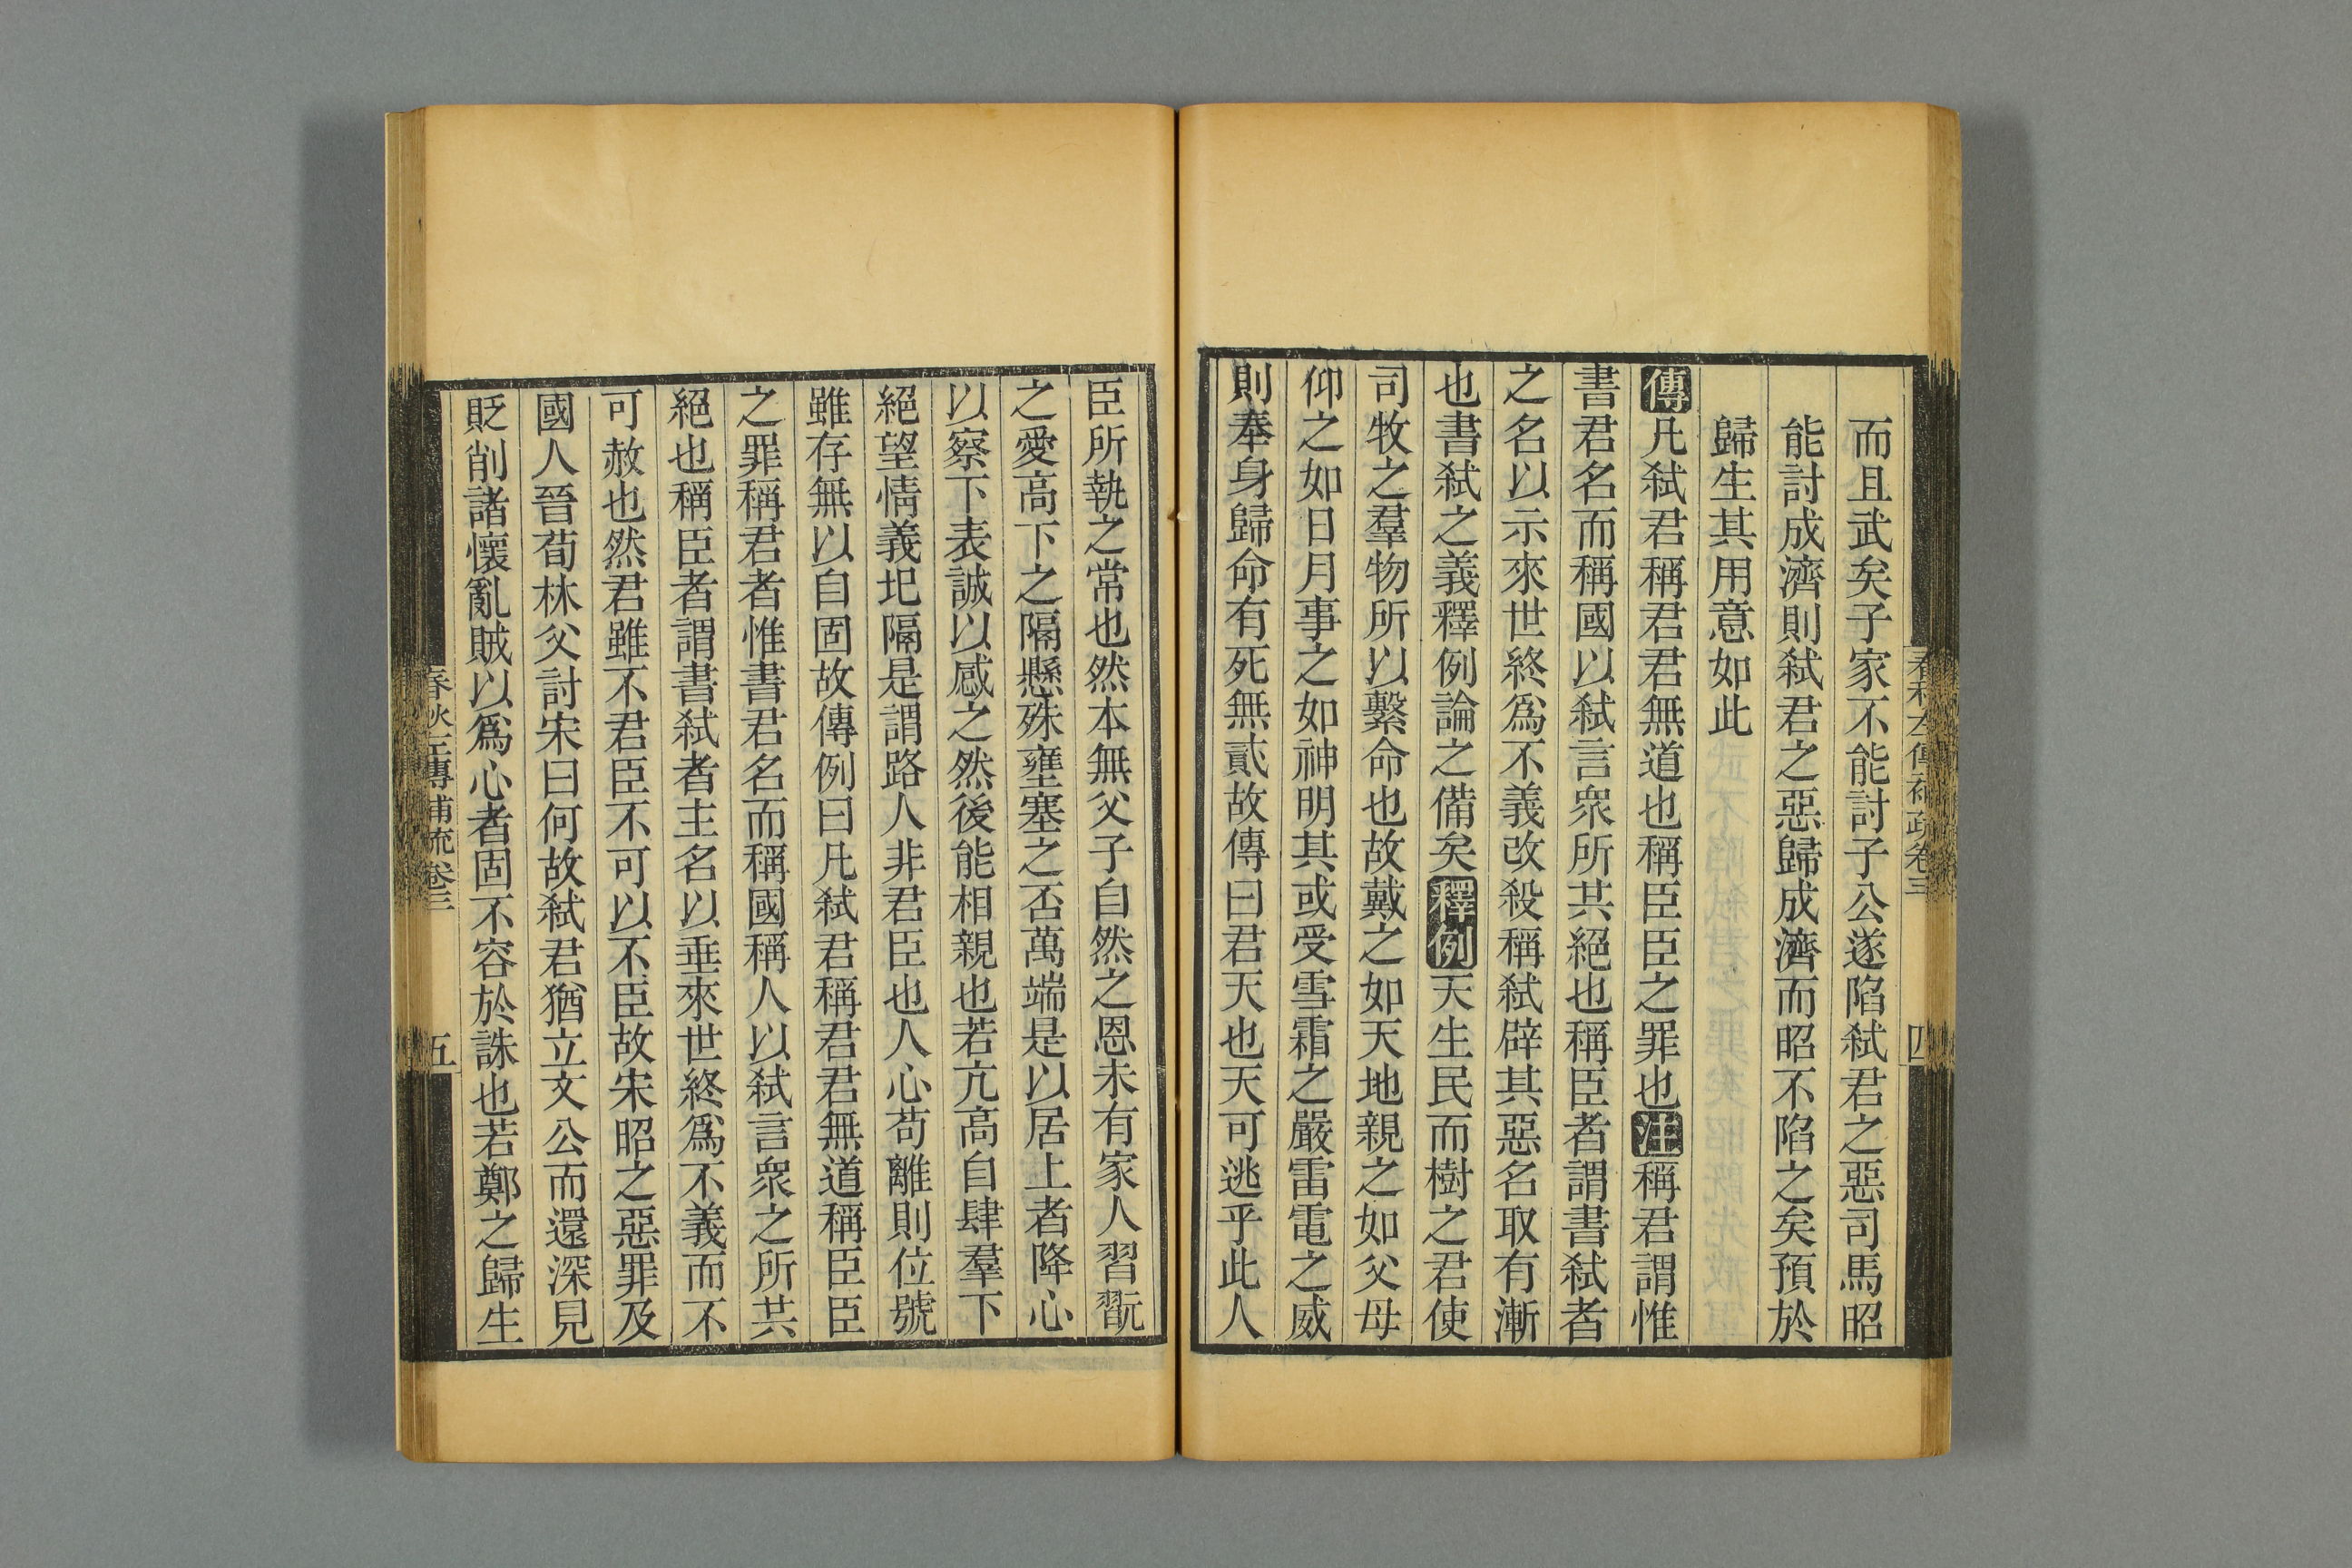 春秋左傳補疏卷三
四
而且武矣子家不能討子公遂陷弑君之惡司馬昭
能討成濟則弑君之惡歸成濟而昭不陷之矣預於
歸生其用意如此
傳凡弑君稱君君無道也稱臣臣之罪也注稱君謂惟
書君名而稱國以弑言衆所共絕也稱臣者謂書弑者
之名以示來世終爲不義改殺稱弑辟其惡名取有漸
也書弑之義釋例論之備矣釋例天生民而樹之君使
司牧之羣物所以繫命也故戴之如天地親之如父母
仰之如日月事之如神明其或受雪霜之嚴雷電之威
則奉身歸命有死無貳故傳曰君天也天可逃乎此人
臣所執之常也然本無父子自然之恩未有家人習翫
之愛高下之隔懸殊壅塞之否萬端是以居上者降心
以察下表誠以感之然後能相親也若亢高自肆羣下
絕望情義圯隔是謂路人非君臣也人心苟離則位號
雖存無以自固故傳例曰凡弑君稱君君無道稱臣臣
之罪稱君者惟書君名而稱國稱人以弑言衆之所共
絕也稱臣者謂書弑者主名以垂來世終爲不義而不
可赦也然君雖不君臣不可以不臣故宋昭之惡罪及
國人晉荀林父討宋曰何故弑君猶立文公而還深見
貶削諸懷亂賊以爲心者固不容於誅也若鄭之歸生
春秋左傳補疏卷三
五